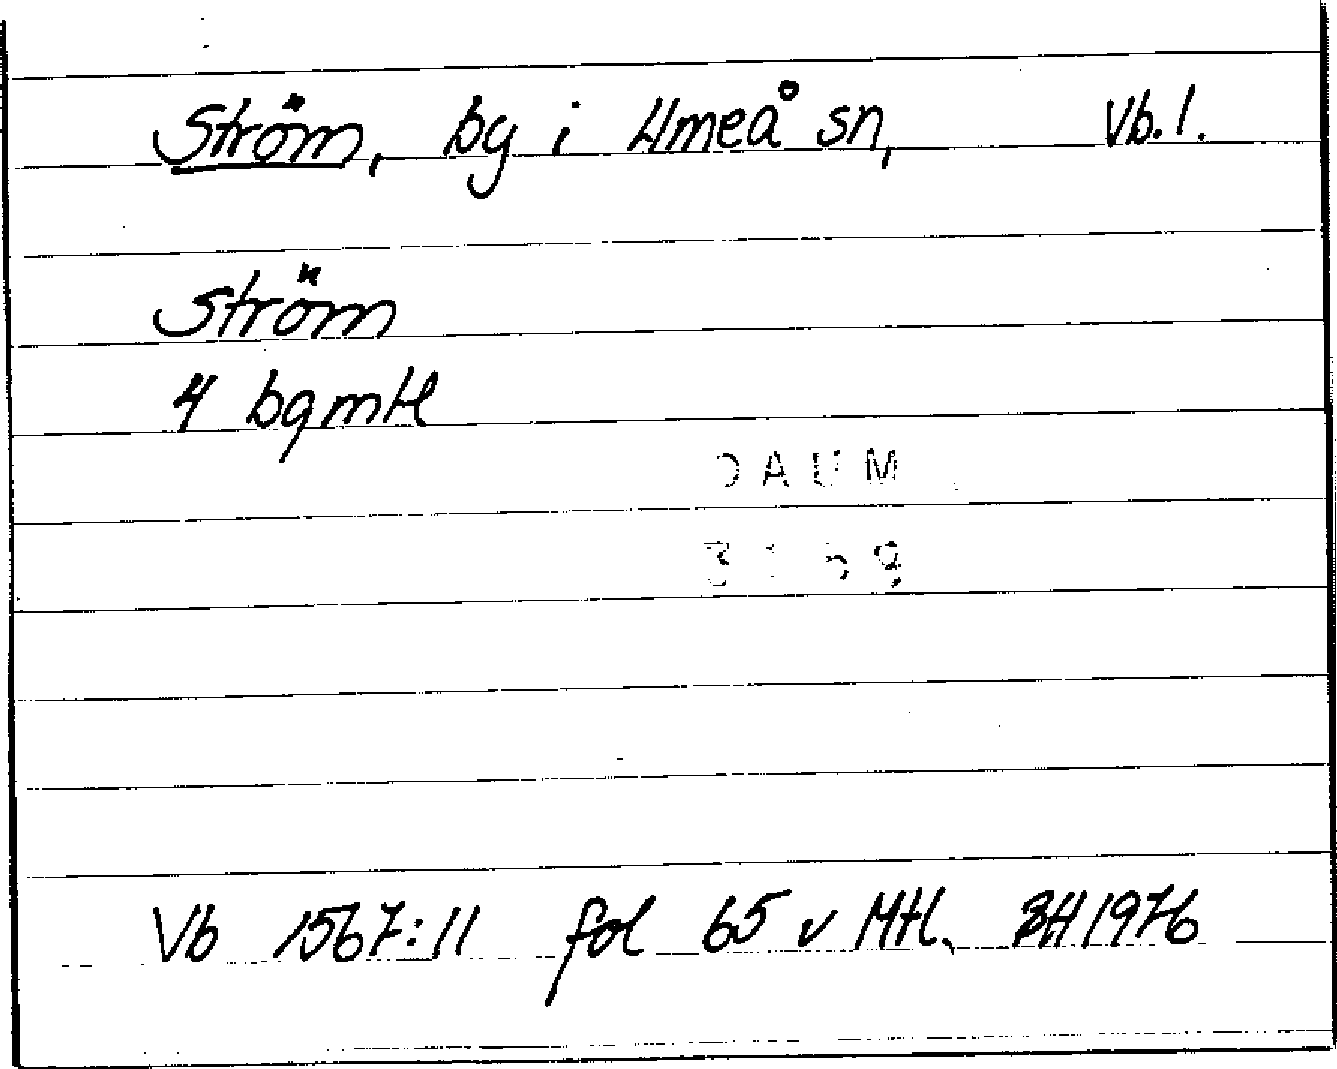 Ström, by i Umeå sn, Vb. l.
Ström
4 bgmtl
DAUM
Vb 1567:11 fol 65 v Mtl. BH 1976